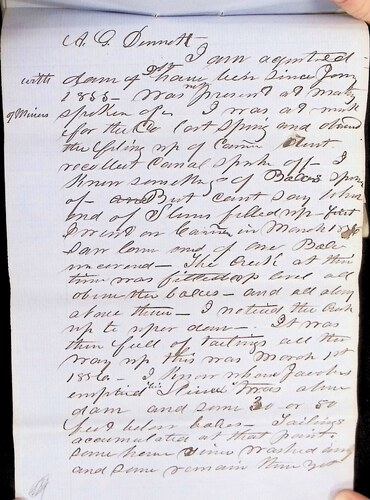 A. G. Dennett
I am aquinted
with dam of have been since Jany
1855 was present at
of Miners spoken of. I was at work
for the Co last Spring and
the filing up of dont
recollect Canal spoke of. I
know something of Bales spoke
of But cant say when
end of Flume filled up first
I went on in March 185
Saw lower end of one Bale
uncovered The Creek at this
time was filled up level all
above the bales and all along
above them I noticed the Creek
up to uper dam. It was
then full of tailings all the
way up this was March 1st
1856. I know where Jacobs
emptied Sluice was above
dam and some 30 or 50
feet below bales Tailings
accumulated at that point
some have since washed away
and some remain there yet